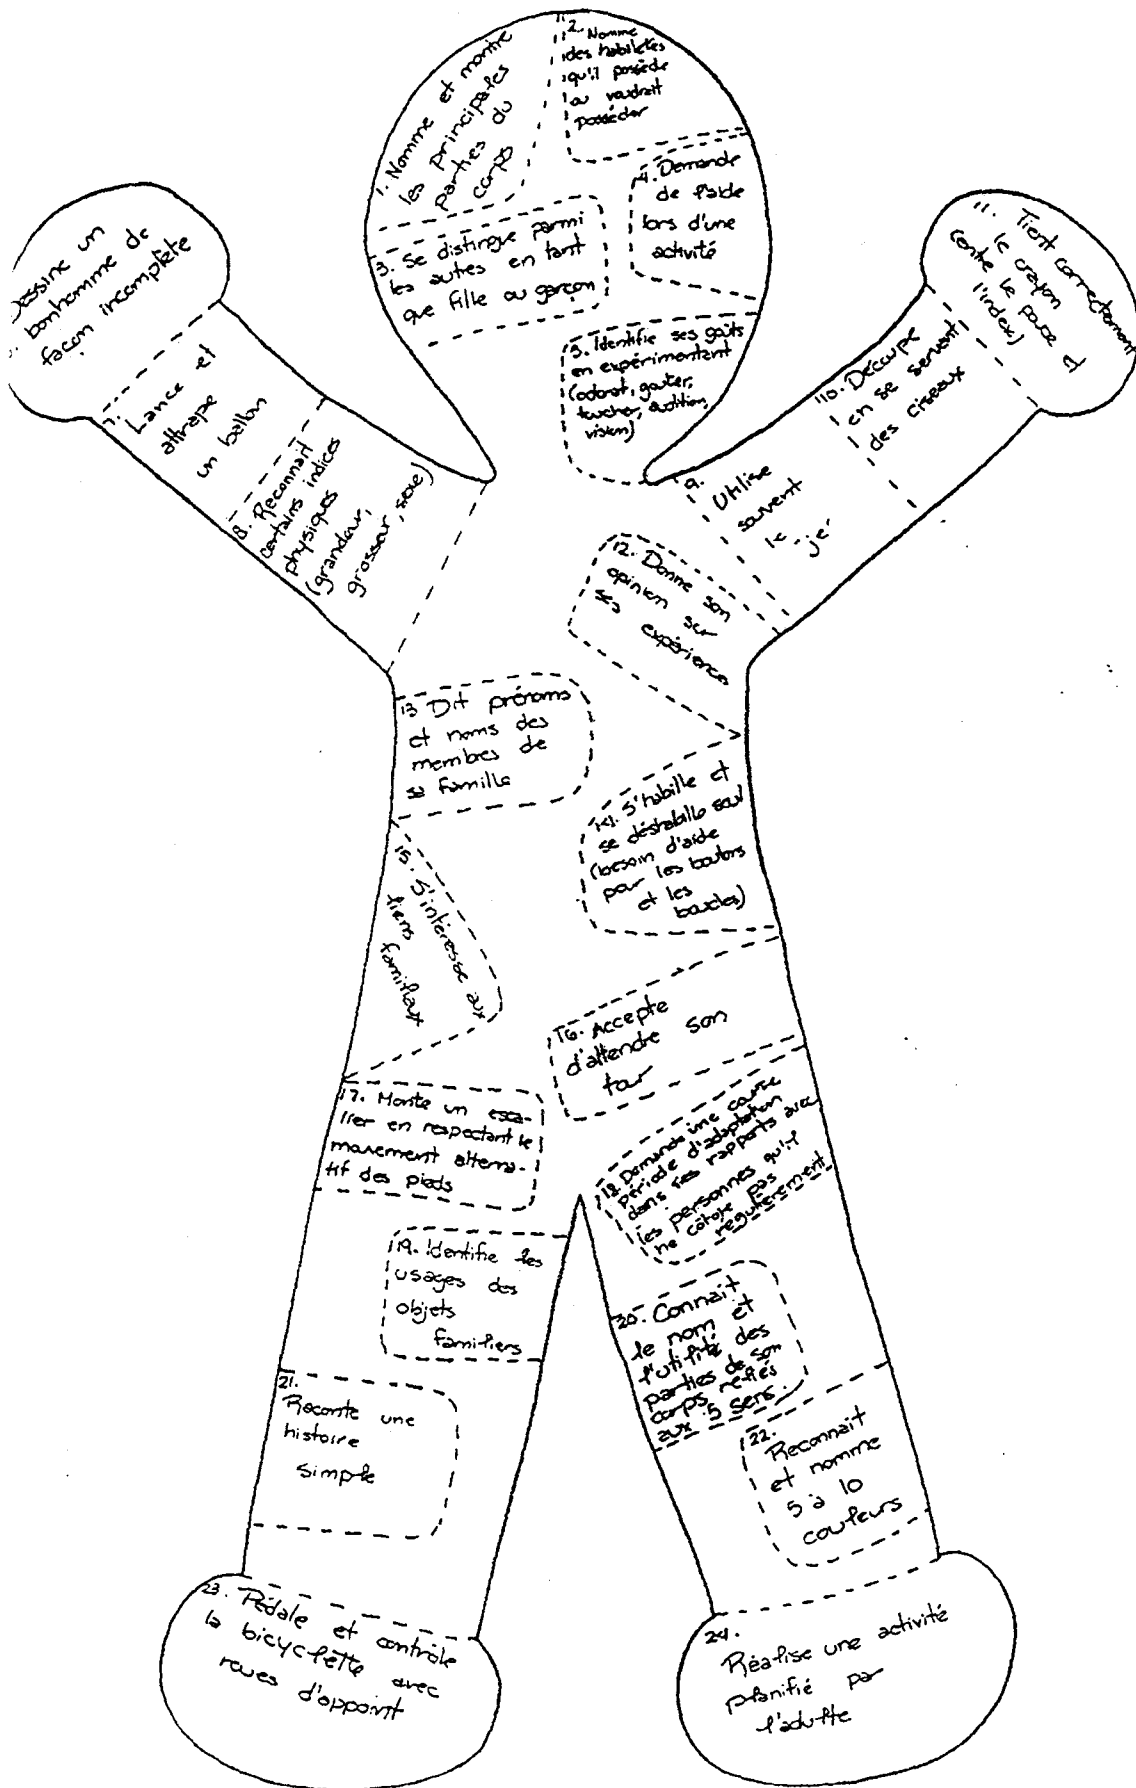 1. Nomme et montre
les principales
parties du
corps
2. Nomme
des habiletés
qu'il possède
ou voudrait
posséder
3. Se distingue parmi
les autres en tant
que fille ou garçon
4. Demande
de l'aide
lors d'une
activité
5. Identifie ses goûts
en expérimentant
(odorat, goûter,
toucher, audition,
vision)
Dessine un
bonhomme de
façon incomplète
7.
Lance et
attrape
un ballon
8. Reconnait
certains indices
physiques
(grandeur,
grosseur, sexe)
9.
Utilise
souvent
le
"je"
10. Découpe
en se servent
des ciseaux
11. Tient correctement
le crayon
contre le pouce et
l'index)
12. Donne son
opinion sur
ses expérience
13 Dit prénoms
et noms des
membres de
sa famille
14. S'habille et
se déshabille seul
(besoin d'aide
pour les boutons
et les
boucles)
15. S'intéresse aux
liens
familiaux
16. Accepte
d'attendre son
tour
17. Monte un esca-
lier en respectant le
mouvement alterna-
tif des pieds
18. Demande une courte
période d'adaptation
dans ses rapports avec
les personnes qu'il
ne côtoie pas
régulièrement
19. Identifie les
usages des
objets
familiers
20. Connait
le nom et
l'utilité des
parties de son
corps reliés
aux 5 sens.
21.
Raconte une
histoire
simple
22.
Reconnait
et nomme
5 à 10
couleurs
23. Pédale et contrôle
la bicyclette avec
roues d'appoint
24.
Réalise une activité
planifié par
l'adulte